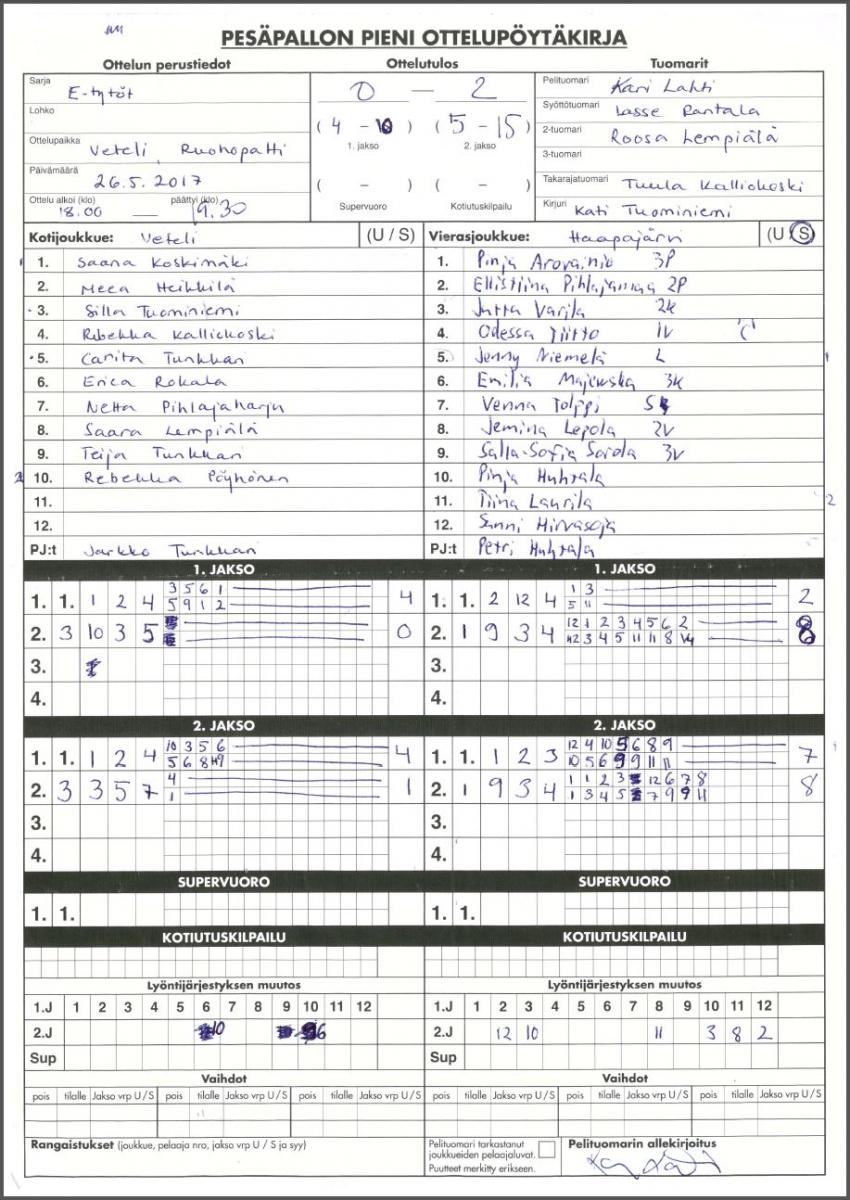 PESÄPALLON PIENI OTTELUPÖYTÄKIRJA
Ottelun perustiedot Ottelutulos Tuomarit
Sarja E-tytöt
Lohko
Ottelupaikka Veteli, Ruohopatti
Päivämäärä 26.5.2017
Ottelu alkoi (klo) 18.00 — päättyi (klo) 19.30
0 — 2
(4 - 10) (5 - 15)
1. jakso 2. jakso
( - ) ( - )
Supervuoro Kotiutuskilpailu
Pelituomari Kari Lahti
Syöttötuomari Lasse Rantala
2-tuomari Roosa Lempiälä
3-tuomari
Takarajatuomari Tuula Kalliokoski
Kirjuri Kati Tuominiemi
Kotijoukkue: Veteli (U / S)
1. Saana Koskimäki
2. Meea Heikkilä
3. Silla Tuominiemi
4. Rebekka Kalliokoski
5. Carita Tunkkari
6. Erica Rokala
7. Netta Pihlajaharju
8. Saara Lempiälä
9. Teija Tunkkari
10. Rebekka Pöyhönen
11.
12.
PJ:t Jarkko Tunkkari
Vierasjoukkue: Haapajärvi (U / S)
1. Pinja Arovainio 3P
2. Ellistiina Pihlajamaa 2P
3. Jutta Varila 2K
4. Odessa Tiitto 1V
5. Jenny Niemelä L
6. Emilia Majewska 3K
7. Venna Tolppi S
8. Jemina Lepola 2V
9. Salla-Sofia Soida 3V
10. Pinja Huhtala
11. Tiina Laurila
12. Sunni Hirvasoja
PJ:t Petri Huhtala
1. JAKSO
1. 1. 1 2 4 3 5 6 1 4
5 9 1 2
2. 3 10 3 5 0
3.
4.
1. JAKSO
1. 1. 2 12 4 1 3 2
5 11
2. 1 9 3 4 12 1 2 3 4 5 6 2 8
12 3 4 5 11 11 8
3.
4.
2. JAKSO
1. 1. 1 2 4 10 3 5 6 4
5 6 8 9
2. 3 3 5 7 4 1
1
3.
4.
2. JAKSO
1. 1. 1 2 3 12 4 10 5 6 8 9 7
10 5 6 9 9 11 11
2. 1 9 3 4 1 1 2 3 12 6 7 8 8
1 3 4 5 7 9 9 11
3.
4.
SUPERVUORO SUPERVUORO
1. 1. 1. 1.
KOTIUTUSKILPAILU KOTIUTUSKILPAILU
Lyöntijärjestyksen muutos Lyöntijärjestyksen muutos
1.J 1 2 3 4 5 6 7 8 9 10 11 12 1.J 1 2 3 4 5 6 7 8 9 10 11 12
2.J 10 6 2.J 12 10 11 3 8 2
Sup Sup
Vaihdot Vaihdot
pois tilalle Jakso vrp U / S pois tilalle Jakso vrp U / S pois tilalle Jakso vrp U / S pois tilalle Jakso vrp U / S pois tilalle Jakso vrp U / S pois tilalle Jakso vrp U / S
Rangaistukset (joukkue, pelaaja nro, jakso vrp U / S ja syy)
Pelituomari tarkastanut
joukkueiden pelaajaluvat.
Puutteet merkitty erikseen.
Pelituomarin allekirjoitus